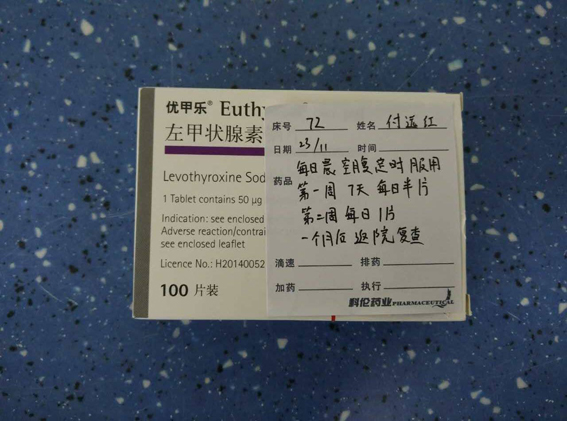 优甲乐® Euthy
左甲状腺素
Levothyroxine Sod
1 Tablet contains 50 μg
Indication: see enclosed
Adverse reaction/contrai
see enclosed leaflet
Licence No.: H20140052
100 片装
床号 72 姓名 付运红
日期 23/11 时间
药品 每日晨空腹定时服用
第一周 7天 每日半片
第二周 每日1片
一个月后返院复查
滴速 排药
加药 执行
科伦药业 PHARMACEUTICAL